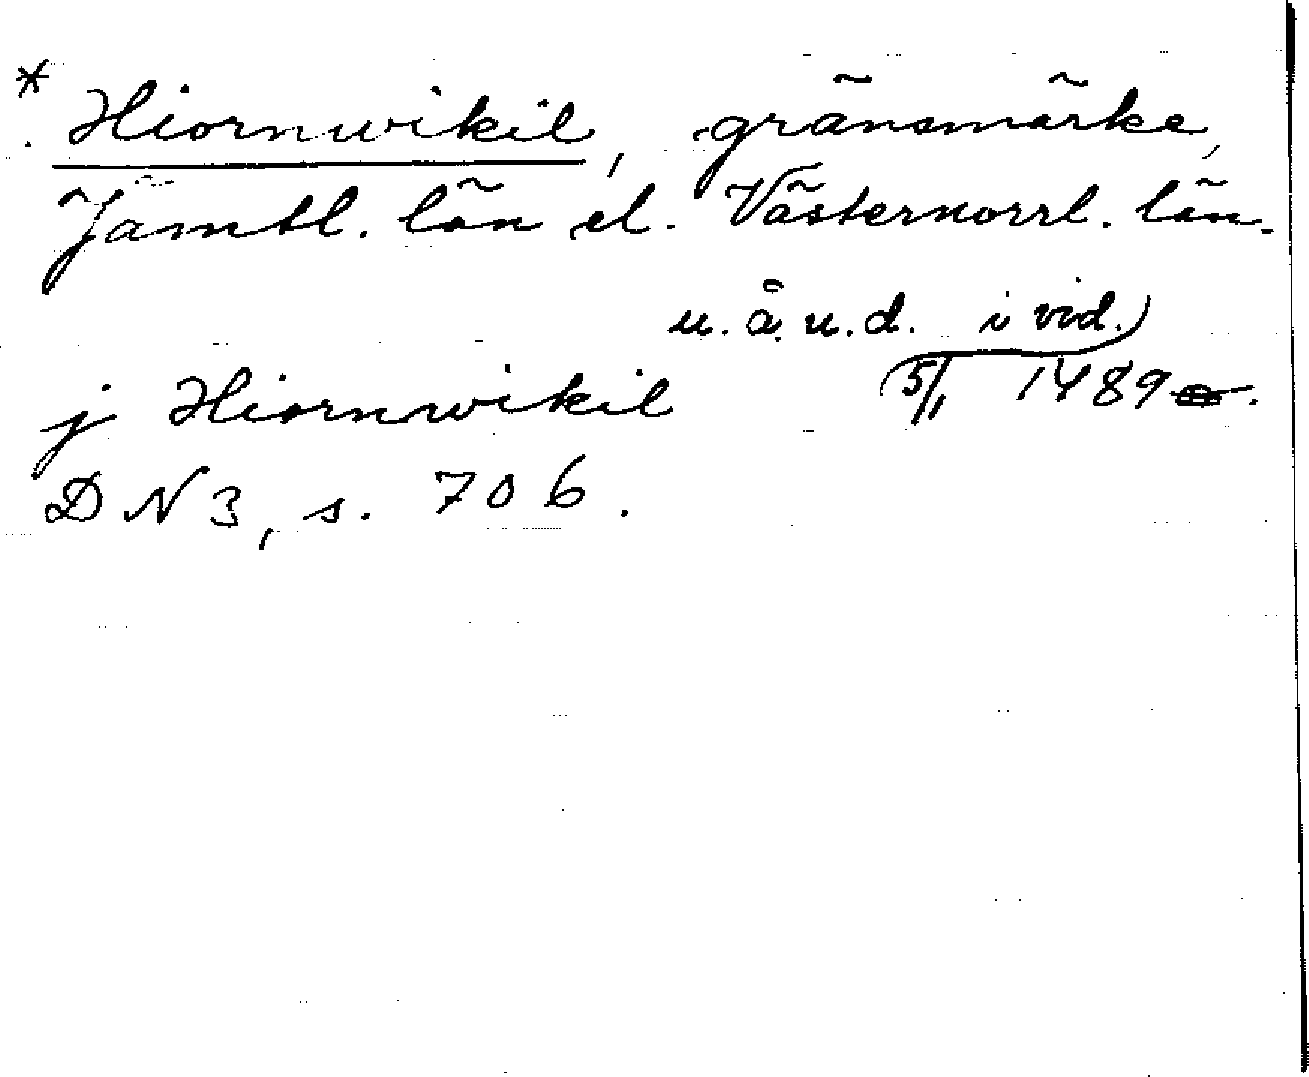 * Hiornwikil, gränsmärke,
Jämtl. län el. Västernorrl. län.
u. å. u. d. i vid.
j Hiornwikil 5/1 1489.
DN 3, s. 706.